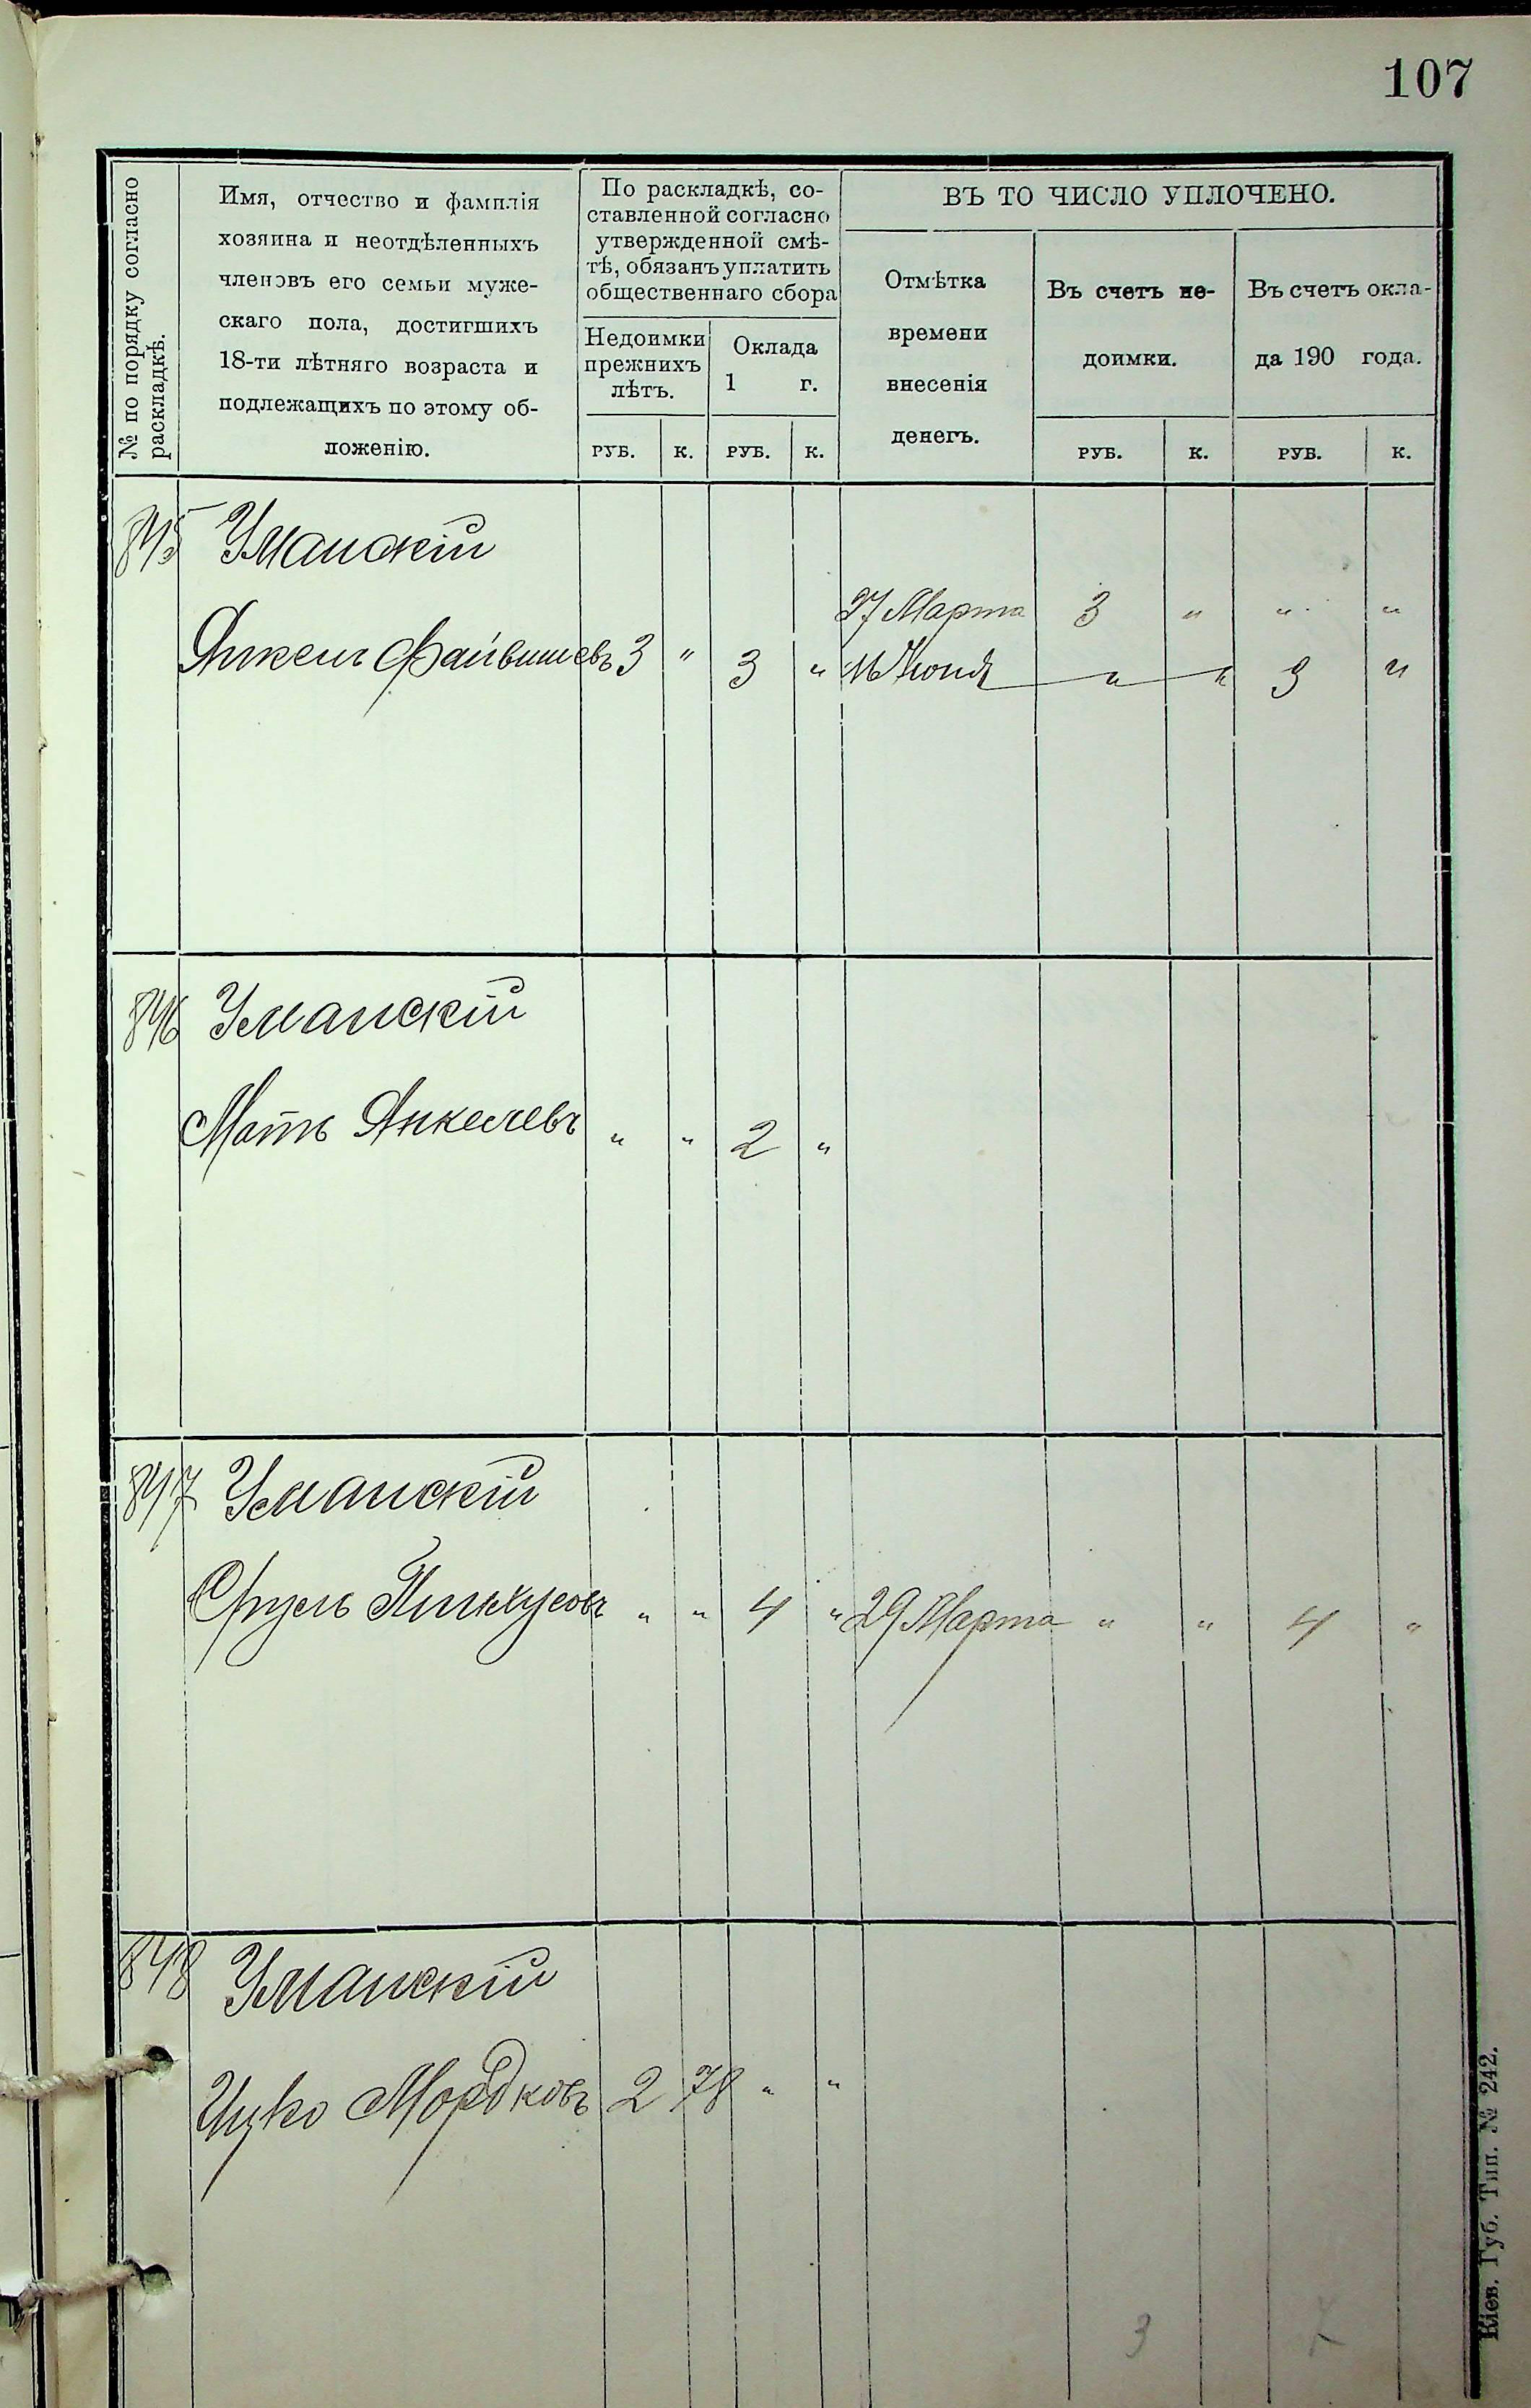 107
№ по порядку согласно
раскладкѣ.
Имя, отчество и фамилія
хозяина и неотдѣленныхъ
членовъ его семьи муже-
скаго пола, достигшихъ
18-ти лѣтняго возраста и
подлежащихъ по этому об-
ложенію.
По раскладкѣ, со-
ставленной согласно
утвержденной смѣ-
тѣ, обязанъ уплатить
общественнаго сбора
Недоимки
прежнихъ
лѣтъ.
Оклада
1 г.
РУБ. К. РУБ. К.
ВЪ ТО ЧИСЛО УПЛОЧЕНО.
Отмѣтка
времени
внесенія
денегъ.
Въ счетъ не-
доимки.
Въ счетъ окла-
да 190 года.
РУБ. К. РУБ. К.
845 Уманскій
27 Марта 3 " " "
Янкель Файвишевъ 3 " 3 " Іюня " " 3 "
846 Уманскій
Мать Янкелевъ " " 2 "
847 Уманскій
Сруль Пинхусовъ " " 4 " 29 Марта " " 4 "
848 Уманскій
Ицко Мордковъ 2 78 " "
3 7
Кіев. Губ. Тип. № 242.